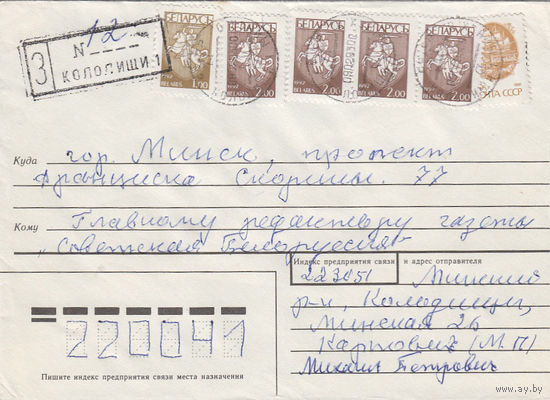 БЕЛАРУСЬ БЕЛАРУСЬ БЕЛАРУСЬ БЕЛАРУСЬ БЕЛАРУСЬ
1992 1992 1992 1992
BELARUS 1.00 BELARUS 2.00 BELARUS 2.00 BELARUS 2.00 BELARUS 2.00
ПОЧТА СССР
З
N 12
КОЛОДИЩИ-1
Куда гор. Минск, проспект
Франциска Скорины. 77
Кому Главному редактору газеты
"Советская Белоруссия"
Индекс предприятия связи и адрес отправителя
223051 Минский
р-н, Колодищи,
Минская 26
Карпович (М.П)
Михаил Петрович
220041
Пишите индекс предприятия связи места назначения
www.ay.by